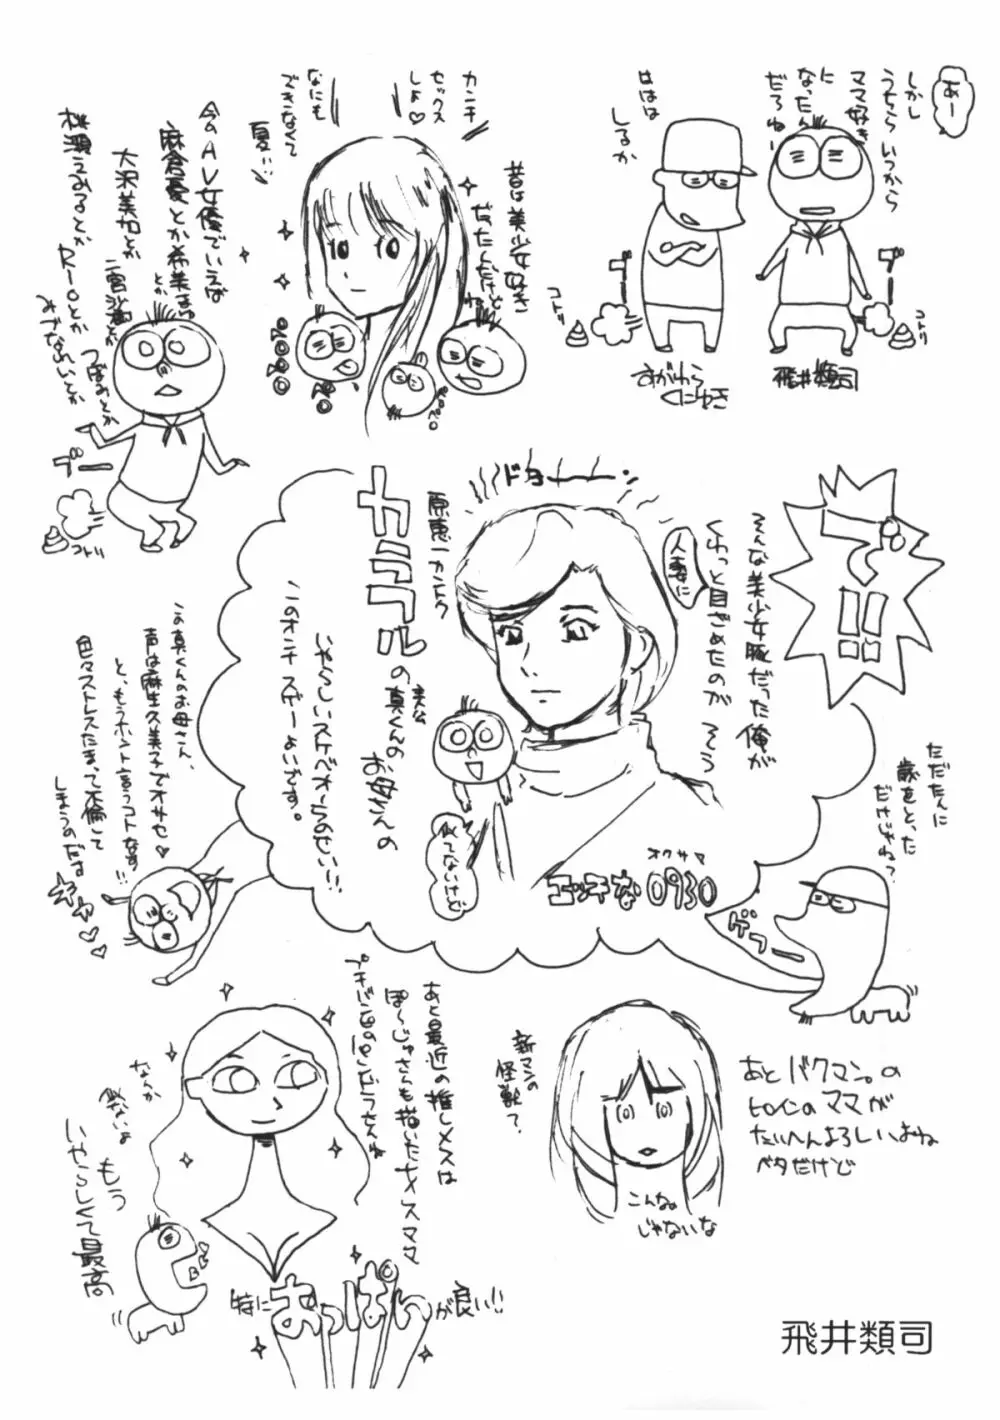 あー
しかし
うちらいつから
ママ好き
に
なったん
だろねー
ははは
しるか
ブー
コトリ
ブー
コトリ
すがわら
くにゆき
飛井類司
昔は美少女好き
だったんだけど
ね
カンチ
セックス
しよ♡
なにも
できなくて
夏!!
ペロペロ
今のAV女優でいえば
麻倉憂とか希美まゆ
とか
大沢美加とか
二宮沙樹とか
つぼみとか
桃瀬えみるとか
Rioとか
みづなれいとか
ブー
コトリ
で!!
そんな美少女豚だった俺が
くわっと目ざめたのが そう
人妻に
ドキューーン
原恵一カントク
カラフル
の
主人公
真くんの
お母さんの
いやらしいスケベオーラのせい!!
このオンナ スゲーよいです。
似てないけど
エッチな0930
オクサマ
この真くんのお母さん、
声は麻生久美子でオサセ♡
と、もうホント言うコトなす!!
色々ストレスたまって不倫して
しまうのだな
ただたんに
歳をとった
だけじゃね?
ゲフー
あと最近の推しメスは
ぽ〜じゅさんも描いたメスママ
プチバン田のパンドラさんね
なんか
似ないよ
もう
いやらしくて最高
特におっぱいが良い!!
新マンの
怪獣?
こんな。
じゃないな
あとバクマン。の
ヒロインのママが
たいへんよろしいよね
ベタだけど
飛井類司